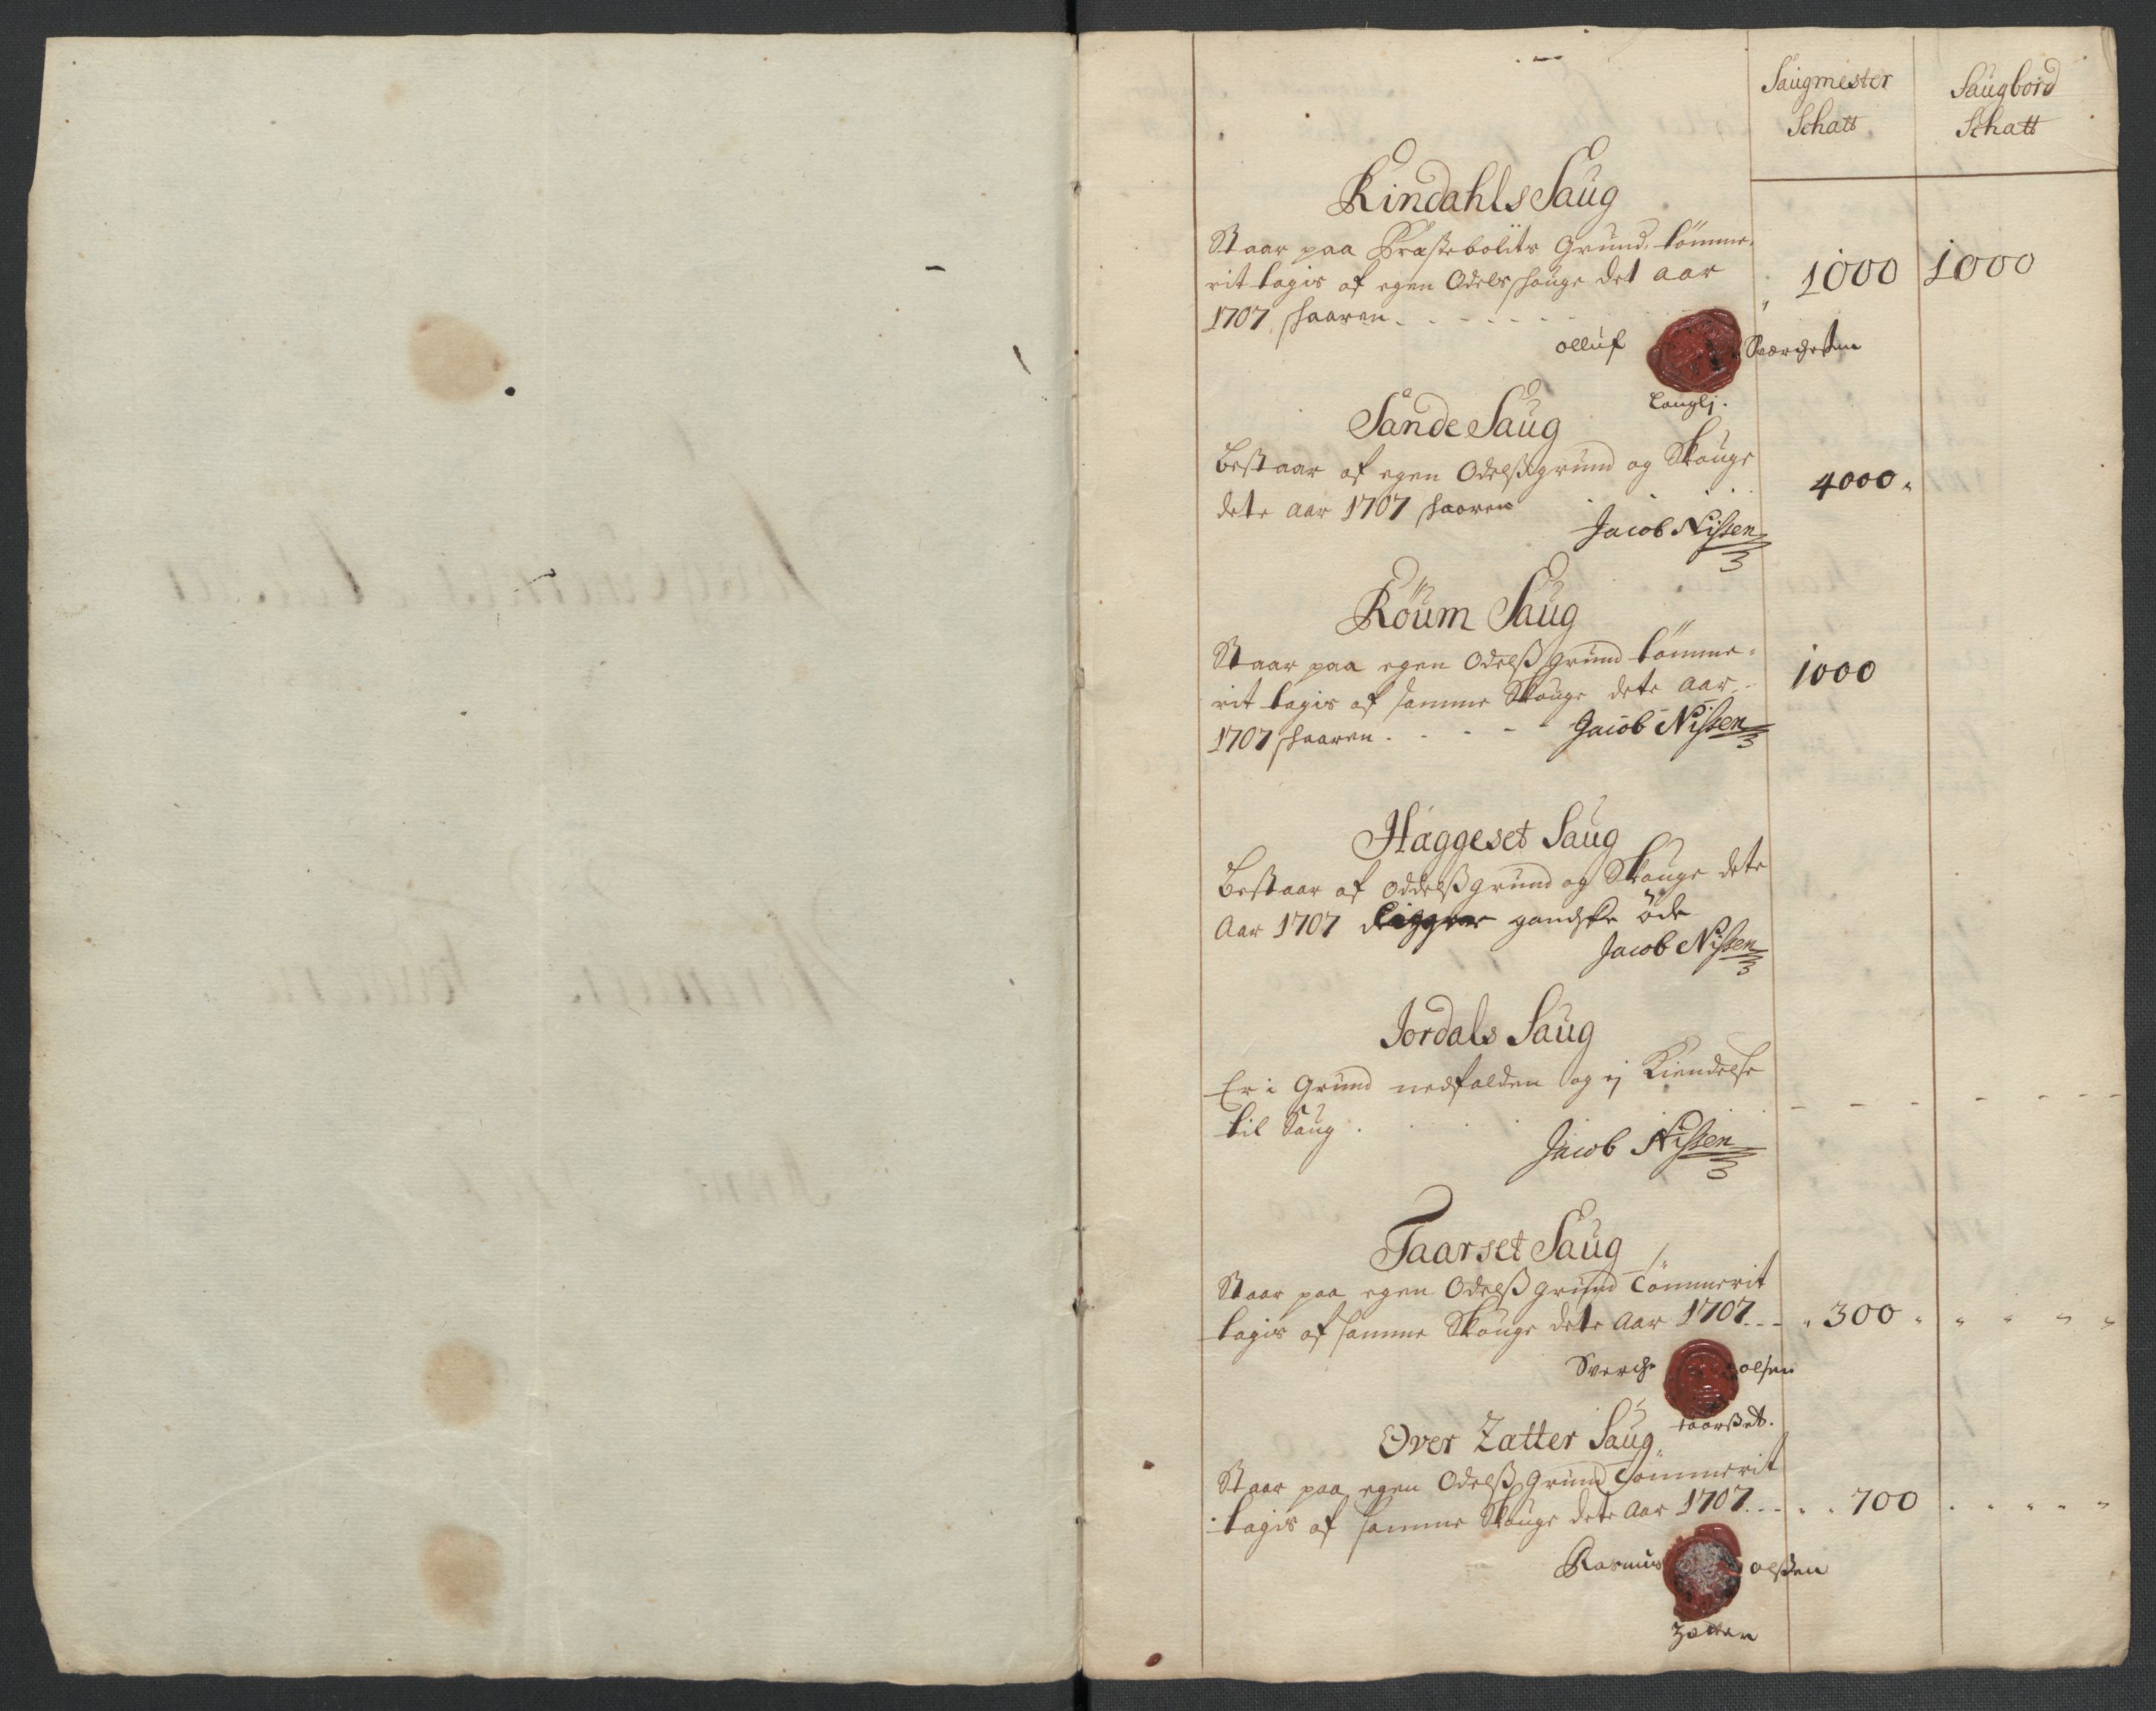 Saugmester Schatt
Saugbord Schatt
Rindahls Saug
Staar paa Præstebolits Grund, tömme-
rit tagis af egen Odels skouge det aar
1707 skaaren
1000
1000
olluf
Langlj.
Sande Saug
Bestaar af egen Odelß grund og Skouge
dete aar 1707 skaaren
4000
Jacob Nissen
Röum Saug
Staar paa egen Odelß grund tömme-
rit tagis af samme Skouge dete aar
1707 skaaren
1000
Jacob Nissen
Haggeset Saug
Bestaar af oddelß grund og Skouge dete
Aar 1707 ligger gandske öde
Jacob Nissen
Jordals Saug
Er i Grund nedfalden og ej Kiendelse
til Saug
Jacob Nissen
Taarset Saug
Staar paa egen Odelß grund Tömmerit
tagis af samme Skouge dete Aar 1707
300
Sverche olsen
taarßet.
Over Zatter Saug
Staar paa egen Odelß Grund Tömmerit
tagis af samme Skouge dete Aar 1707
700
Rasmus olßen
Zætter